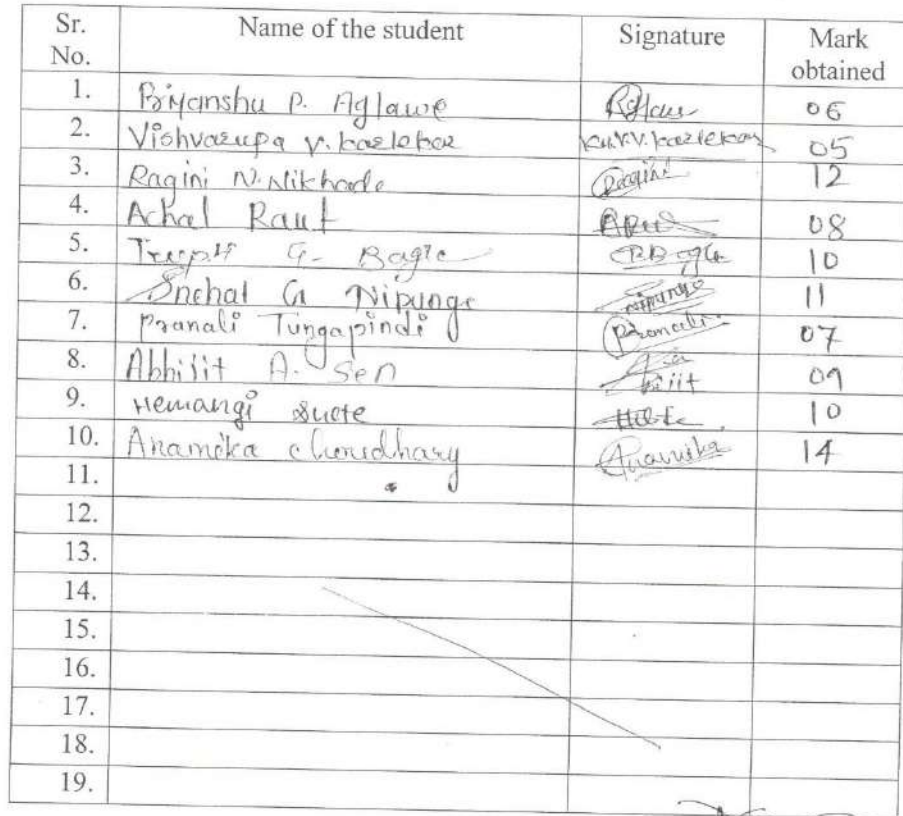 Sr. No. Name of the student Signature Mark obtained
1. Priyanshu P. Aglawe 06
2. Vishvarupa V. Karlekar Ku.V.V. Karlekar 05
3. Ragini N. Nikhade Ragini 12
4. Achal Raut 08
5. Trupti G. Bagde 10
6. Snehal G Nipunge Nipunge 11
7. Pranali Tungapindi Pranali 07
8. Abhijit A. Sen 09
9. Hemangi 10
10. Anamika choudhary Anamika 14
11.
12.
13.
14.
15.
16.
17.
18.
19.